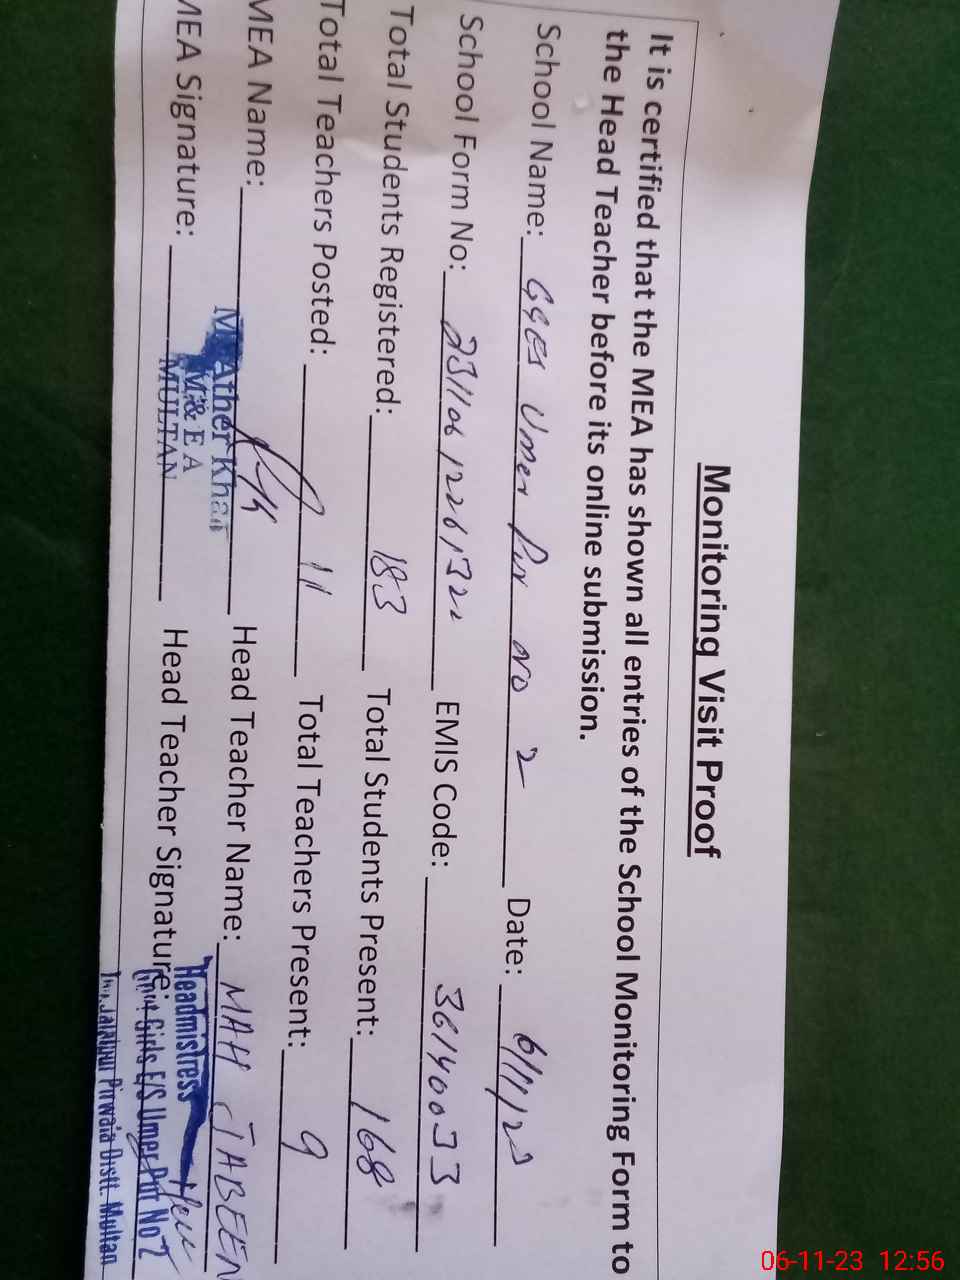 Monitoring Visit Proof
It is certified that the MEA has shown all entries of the School Monitoring Form to
the Head Teacher before its online submission.
School Name: GGES Umer Pur No 2 Date: 6/11/23
School Form No: EMIS Code: 36140033
Total Students Registered: 183 Total Students Present: 168
Total Teachers Posted: 11 Total Teachers Present: 9
MEA Name: Head Teacher Name: MAH JABEEN
MEA Signature: Head Teacher Signature:
M. Ather Khan
M & E A
MULTAN
Headmistress
Govt Girls E/S Umer Pur No 2
Jalalpur Pirwala Distt. Multan
06-11-23 12:56